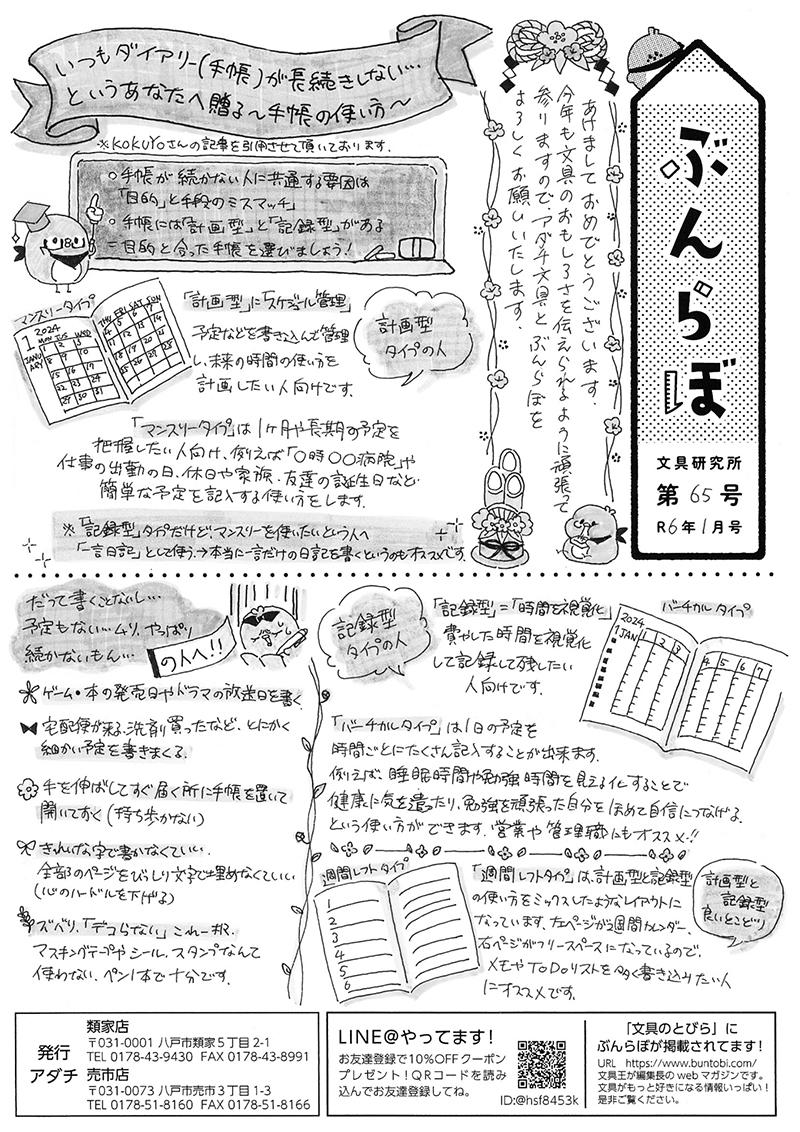 ぶんらぼ
文具研究所
第65号
R6年1月号
あけましておめでとうございます。
今年も文具のおもしろさを伝えられるように頑張って
参りますのでアダチ文具とぶんらぼを
よろしくお願いいたします。
いつもダイアリー(手帳)が長続きしない…
というあなたへ贈る～手帳の使い方～
※KOKUYOさんの記事を引用させて頂いております。
○手帳が続かない人に共通する要因は
「目的」と手段のミスマッチ」
○手帳には「計画型」と「記録型」がある
＝目的と合った手帳を選びましょう!
マンスリータイプ
1 2024
JANUARY
MON TUE WED
THU FRI SAT SUN
計画型
タイプの人
「計画型」に「スケジュール管理」
予定などを書き込んで管理
し、未来の時間の使い方を
計画したい人向けです。
「マンスリータイプ」は1ヶ月や長期の予定を
把握したい人向け、例えば「○時○○病院」や
仕事の出勤の日、休日や家族・友達の誕生日など
簡単な予定を記入する使い方をします。
※「記録型」タイプだけど、マンスリーを使いたいという人へ
「一言日記」として使う→本当に一言だけの日記を書くというのもオススメです。
だって書くことないし…
予定もない…ムリ、やっぱり
続かないもん…
の人へ!!
ゲーム・本の発売日やドラマの放送日を書く
宅配便が来る、洗剤買ったなど、とにかく
細かい予定を書きまくる。
手を伸ばしてすぐ届く所に手帳を置いて
開いておく(持ち歩かない)
きれいな字で書かなくていい、
全部のページをびっしり文字で埋めなくていい
(心のハードルを下げる)
ズバリ、「デコらない」これ一択、
マスキングテープやシール、スタンプなんて
使わない、ペン1本で十分です。
記録型
タイプの人
「記録型」＝「時間を視覚化」
費やした時間を視覚化
して記録して残したい
人向けです。
バーチカルタイプ
2024
1 JAN
1 2 3
4 5 6 7
「バーチカルタイプ」は1日の予定を
時間ごとにたくさん記入することが出来ます。
例えば、睡眠時間や勉強時間を見える化することで
健康に気を遣ったり、勉強を頑張った自分をほめて自信につなげる、
という使い方ができます。営業や管理職にもオススメ!!
週間レフトタイプ
1
2
3
4
5
6
「週間レフトタイプ」は、計画型と記録型
の使い方をミックスしたようなレイアウトに
なっています、左ページが週間カレンダー、
右ページがフリースペースになっているので、
メモやToDoリストを多く書き込みたい人
にオススメです。
計画型と
記録型
良いとこどり
発行
アダチ
類家店
〒031-0001 八戸市類家5丁目2-1
TEL 0178-43-9430 FAX 0178-43-8991
売市店
〒031-0073 八戸市売市3丁目1-3
TEL 0178-51-8160 FAX 0178-51-8166
LINE@やってます!
お友達登録で10%OFFクーポン
プレゼント!QRコードを読み
込んでお友達登録してね。
ID:@hsf8453k
「文具のとびら」に
ぶんらぼが掲載されてます!
URL https://www.buntobi.com/
文具王が編集長のwebマガジンです。
文具がもっと好きになる情報いっぱい!
是非ご覧ください。